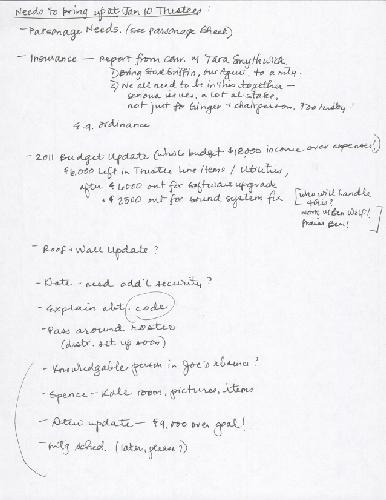 Needs to bring up at Jan 10 Trustees:
- Parsonage Needs. (see Parsonage Sheet)
- Insurance - Report from conv. w/ Tara Smythwick
1) Bring Stod Griffin, our agent to a mtg.
2) We all need to be in this together -
serious issues, a lot at stake,
not just for Ginger + chairperson.
e.g. ordinance
- 2011 Budget Update (whole budget $18,000 income over expenses!)
$6,000 left in Trustee line items / Utilities,
after $4000 out for software upgrade
+ $2500 out for sound system fix
[who will handle
this?
work w/ Ben Wolf!
Praise Ben!]
- Roof + Wall Update?
- Date - need add'l security?
- Explain abt. code
- Pass around roster
(distr. set up soon)
- Knowledgable person in Joe's absence?
- Spence - Kale room, pictures, items
- update - $9,000 over goal!
- Mtg sched. (later, please?)